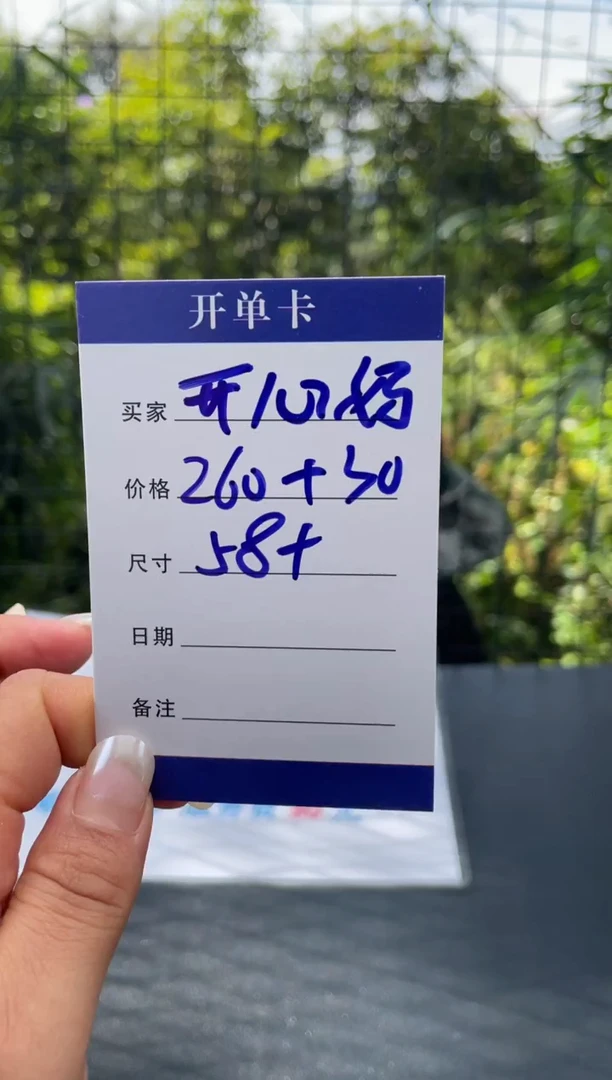 开单卡
买家 开心妈
价格 260+30
尺寸 58+
日期
备注